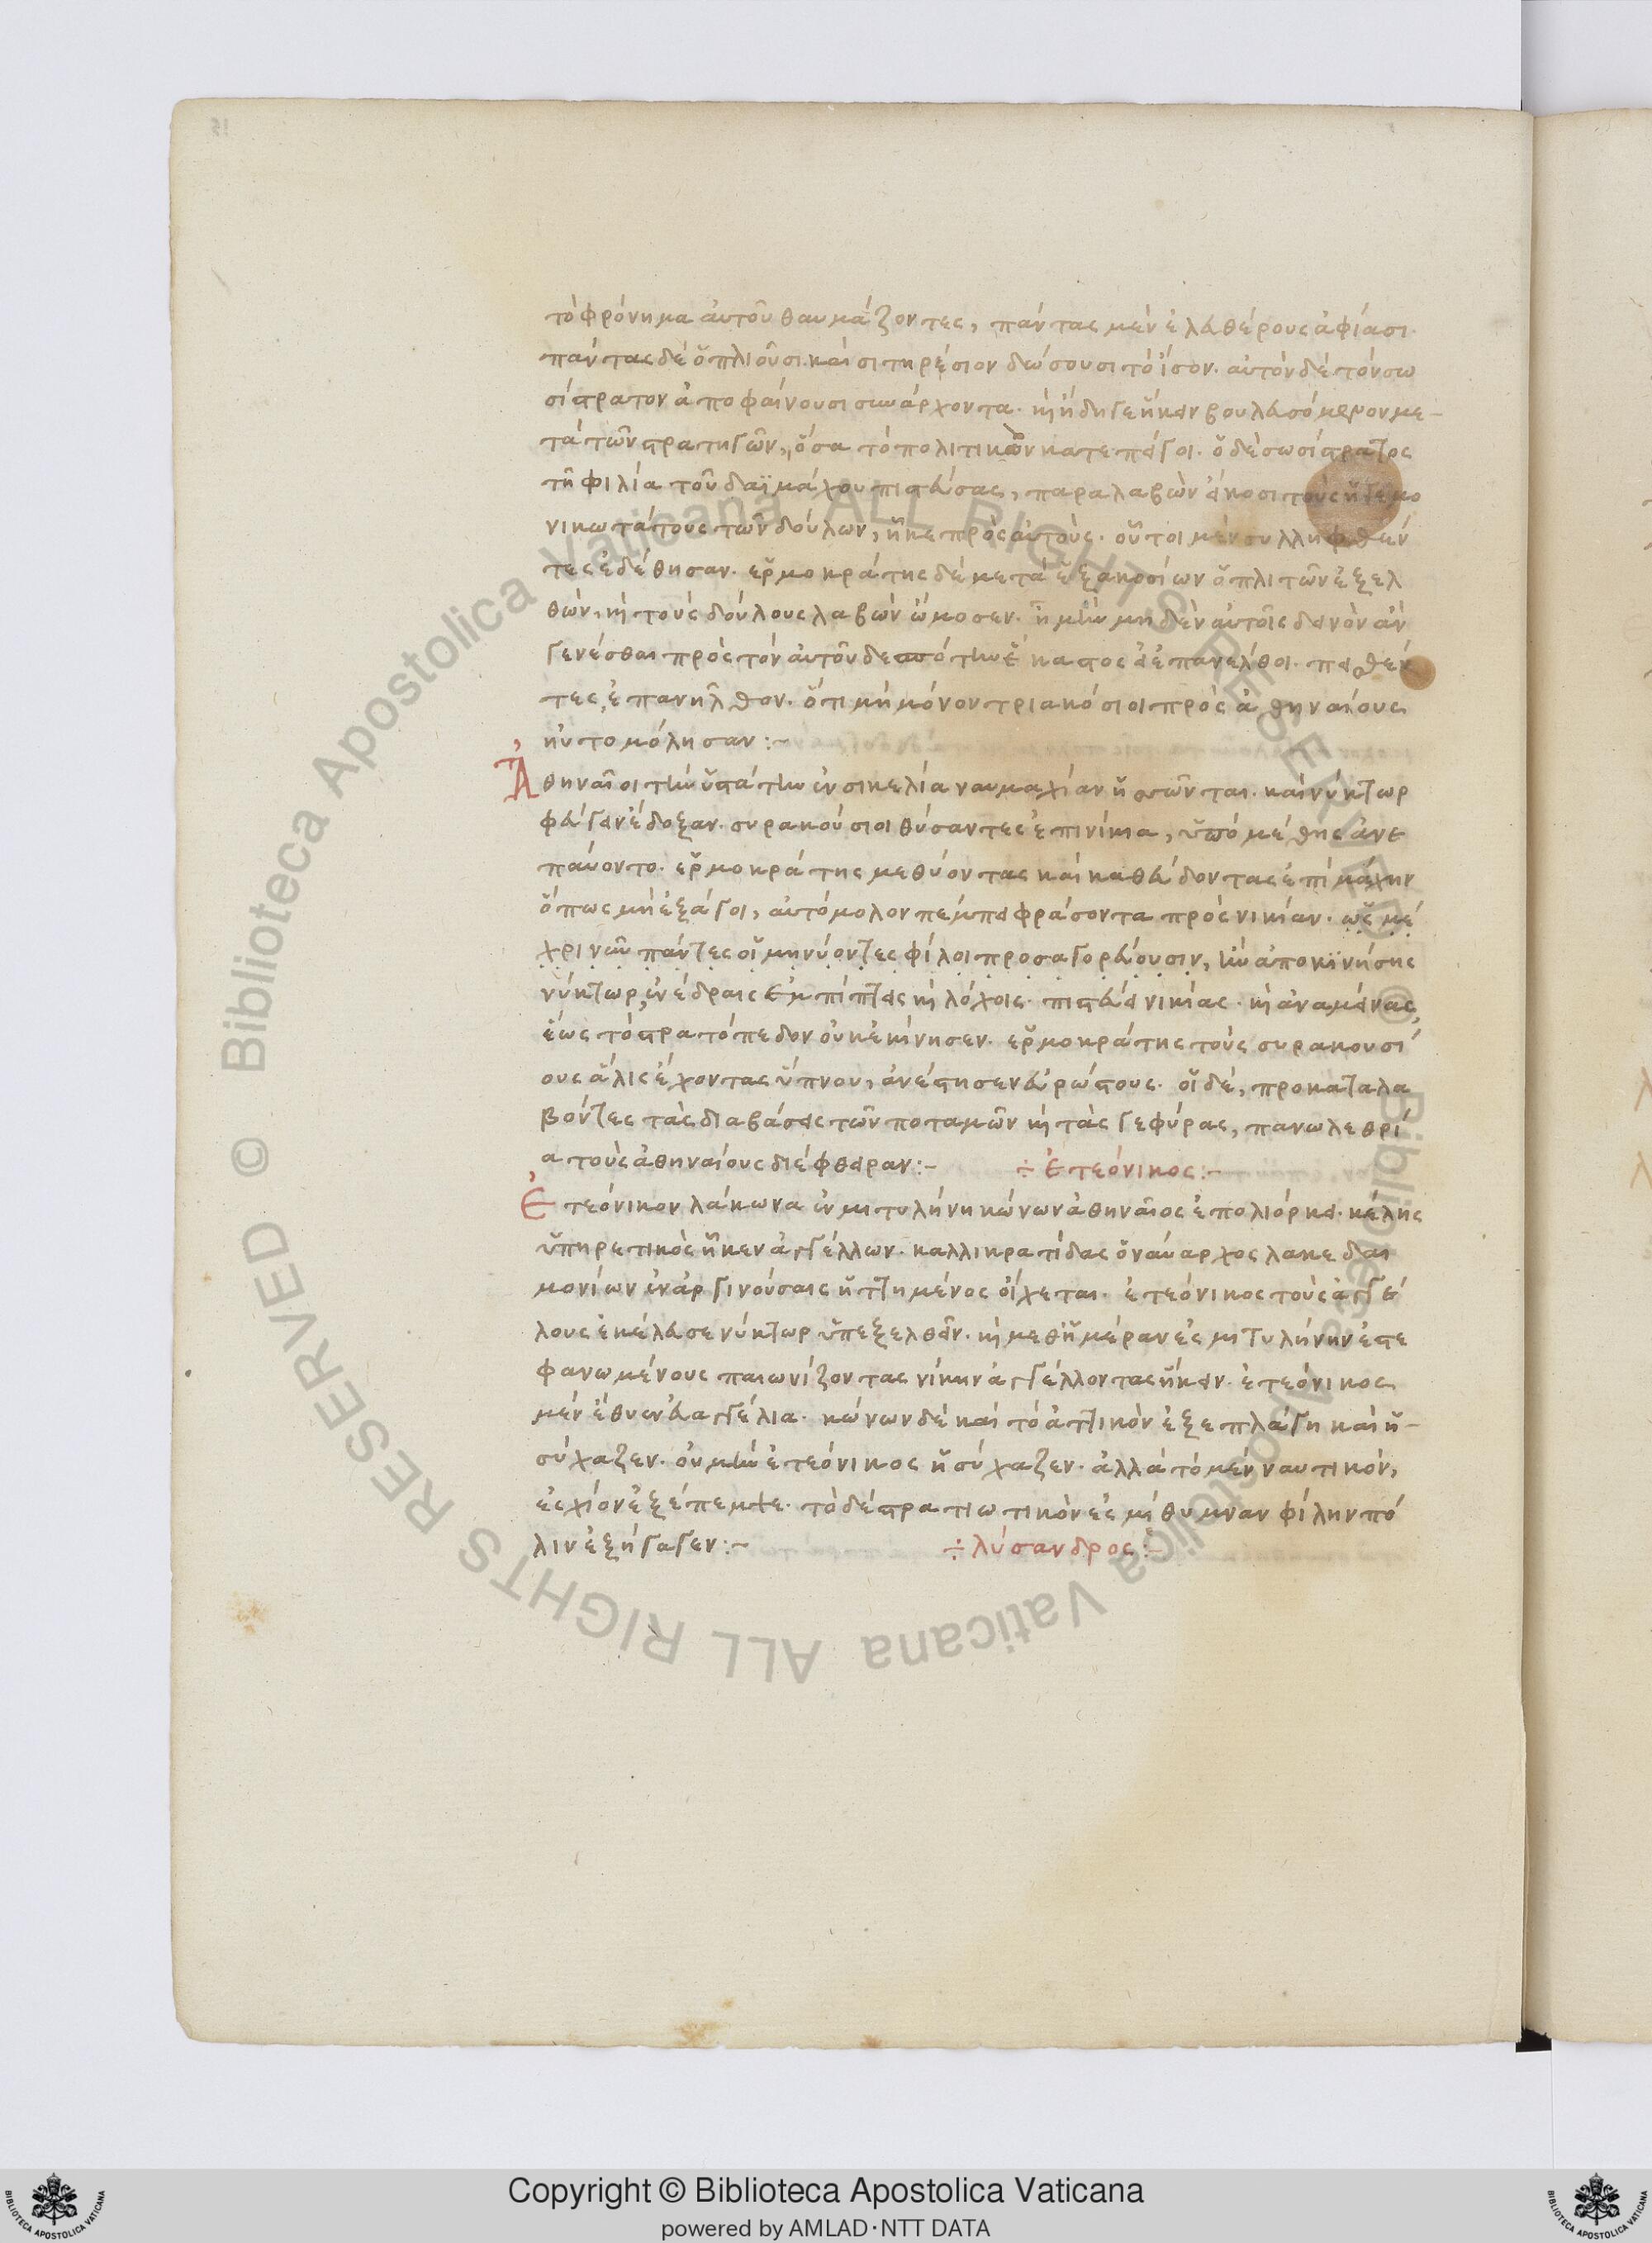 τὸ φρόνημα αὐτοῦ θαυμάζοντες, πάντας μὲν ἐλευθέρους ἀφίασι·
πάντας δὲ ὁπλιοῦσι· καὶ σιτηρέσιον δώσουσι τὸ ἴσον· αὐτὸν δὲ τὸν σω
σίστρατον ἀποφαίνουσι συνάρχοντα· καὶ ἤδη γε ἥκειν βουλευσόμενον με-
τὰ τῶν στρατηγῶν, ὅσα τὸ πολιτικὸν κατεπείγοι· ὁ δὲ σωσίστρατος
τῇ φιλίᾳ τοῦ δαϊμάχου πιστεύσας, παραλαβὼν εἴκοσι τοὺς ἡγεμο
νικωτάτους τῶν δούλων, ἧκε πρὸς αὐτούς· οὗτοι μὲν συλληφθέν
τες ἐδέθησαν· ἑρμοκράτης δὲ μετὰ ἑξακοσίων ὁπλιτῶν ἐξελ
θὼν, καὶ τοὺς δούλους λαβὼν ὤμοσεν· ἦ μὴν μηδὲν αὐτοῖς δεινὸν ἂν
γενέσθαι πρὸς τὸν αὐτοῦ δεσπότην ἕκαστος εἰ ἐπανέλθοι· πεισθέν
τες, ἐπανῆλθον· ὅτι μὴ μόνον τριακόσιοι πρὸς ἀθηναίους
ηὐτομόλησαν:~
Ἀθηναῖοι τὴν ὑστάτην ἐν σικελίᾳ ναυμαχίαν ἡσσῶνται· καὶ νύκτωρ
φεύγειν ἔδοξαν· συρακούσιοι θύσαντες ἐπινίκια, ὑπὸ μέθης ἀνε
παύοντο· ἑρμοκράτης μεθύοντας καὶ καθεύδοντας ἐπὶ μάχην
ὅπως μὴ ἐξάγοι, αὐτόμολον πέμπει φράσοντα πρὸς νικίαν· ὡς μέ
χρι νῦν πάντες οἱ μηνύοντες φίλοι προσαγορεύουσιν, ἢν ἀποκινήσῃς
νύκτωρ, ἐνέδραις ἐμπίπτεις καὶ λόχοις· πιστεύει νικίας· καὶ ἀναμείνας,
ἕως τὸ στρατόπεδον οὐκ ἐκίνησεν· ἑρμοκράτης τοὺς συρακουσί
ους ἅλις ἔχοντας ὕπνου, ἀνέστησεν εὐρώστους· οἱ δὲ, προκαταλα
βόντες τὰς διαβάσεις τῶν ποταμῶν καὶ τὰς γεφύρας, πανωλεθρί
ᾳ τοὺς ἀθηναίους διέφθειραν:~ ÷ Ἐτεόνικος:~
Ἐτεόνικον λάκωνα ἐν μιτυλήνῃ κώνων ἀθηναῖος ἐπολιόρκει· κέλης
ὑπηρετικὸς ἧκεν ἀγγέλλων· καλλικρατίδας ὁ ναύαρχος λακεδαι
μονίων ἐν ἀργινούσαις ἡττημένος οἴχεται· ἐτεόνικος τοὺς ἀγγέ
λους ἐκέλευσε νύκτωρ ὑπεξελθεῖν· καὶ μεθ' ἡμέραν εἰς μιτυλήνην ἐστε
φανωμένους παιωνίζοντας νίκην ἀγγέλλοντας ἥκειν· ἐτεόνικος
μὲν ἔθυεν εὐαγγέλια· κώνων δὲ καὶ τὸ ἀττικὸν ἐξεπλάγη καὶ ἡ-
σύχαζεν· οὐ μὴν ἐτεόνικος ἡσύχαζεν· ἀλλὰ τὸ μὲν ναυτικὸν,
εἰς χίον ἐξέπεμψε· τὸ δὲ στρατιωτικὸν εἰς μήθυμναν φίλην πό
λιν ἐξήγαγεν:~ ÷ λύσανδρος:~
Biblioteca Apostolica Vaticana ALL RIGHTS RESERVED ©
Biblioteca Apostolica Vaticana ALL RIGHTS RESERVED ©
Copyright © Biblioteca Apostolica Vaticana
powered by AMLAD·NTT DATA
BIBLIOTECA APOSTOLICA VATICANA
BIBLIOTECA APOSTOLICA VATICANA